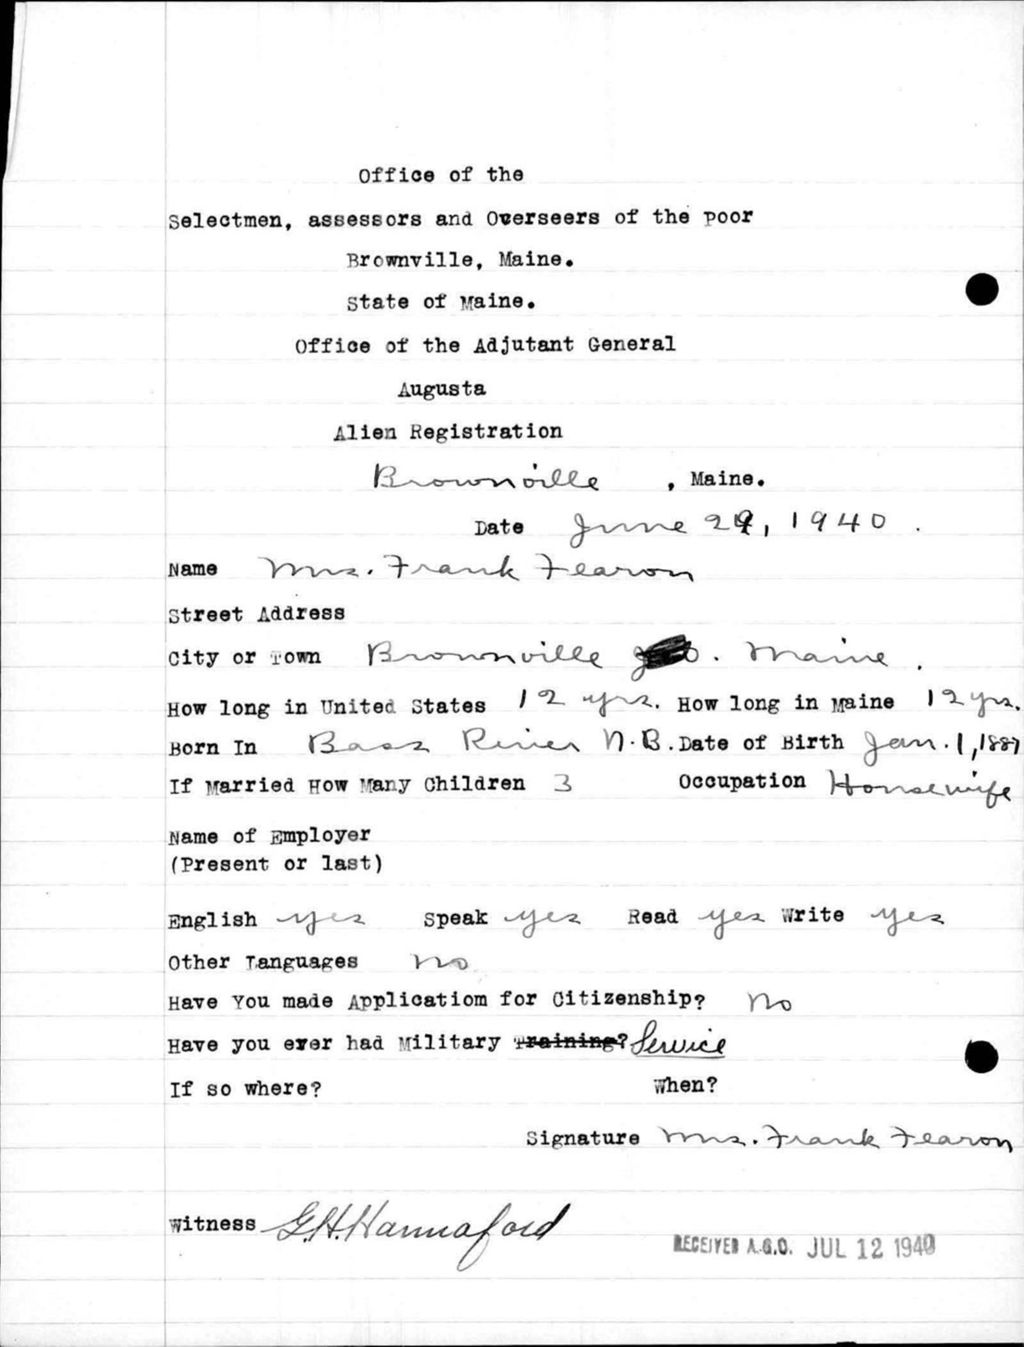 Office of the
Selectmen, assessors and Overseers of the poor
Brownville, Maine.
State of Maine.
Office of the Adjutant General
Augusta
Alien Registration
Brownville , Maine.
Date June 29, 1940 .
Name Mrs. Frank Fearon
Street Address
City or Town Brownville . Maine .
How long in United States 12 yrs. How long in Maine 12 yrs.
Born In Bass River N.B. Date of Birth Jan. 1, 1887
If Married How Many Children 3 Occupation Housewife
Name of Employer
(Present or last)
English yes Speak yes Read yes Write yes
Other Languages no
Have You made Applicatiom for Citizenship? no
Have you ever had Military Training? Service
If so where? When?
Signature Mrs. Frank Fearon
Witness G.H. Hannaford
RECEIVED A.G.O. JUL 12 1940